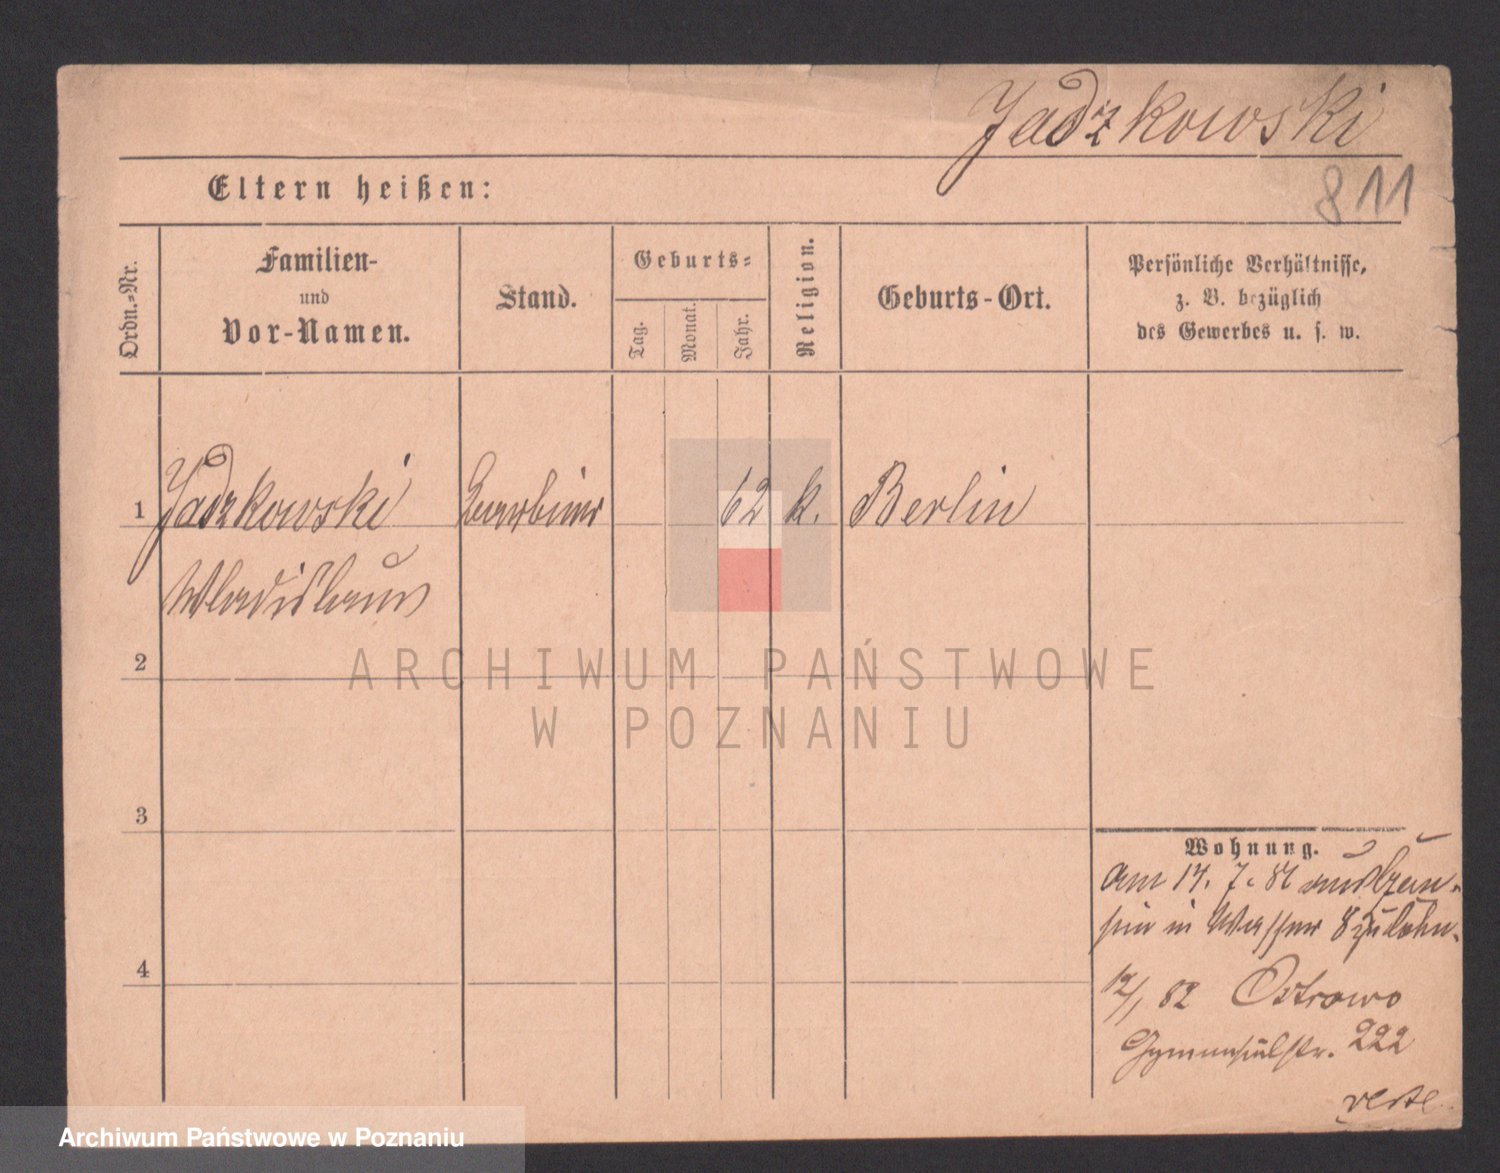 Jadzkowski
811
Eltern heißen:
Ordn.=Nr.
Familien-
und
Vor-Namen.
Stand.
Geburts=
Tag.
Monat.
Jahr.
Religion.
Geburts-Ort.
Persönliche Verhältnisse,
z. B. bezüglich
des Gewerbes u. s. w.
1 Jadzkowski Barbier 62 k. Berlin
Wladislaus
2
3
4
Wohnung.
am 14. 7. 81
in Wasser 8
12/1 82 Ostrowo
Gymnasialstr. 222
ARCHIWUM PAŃSTWOWE
W POZNANIU
Archiwum Państwowe w Poznaniu